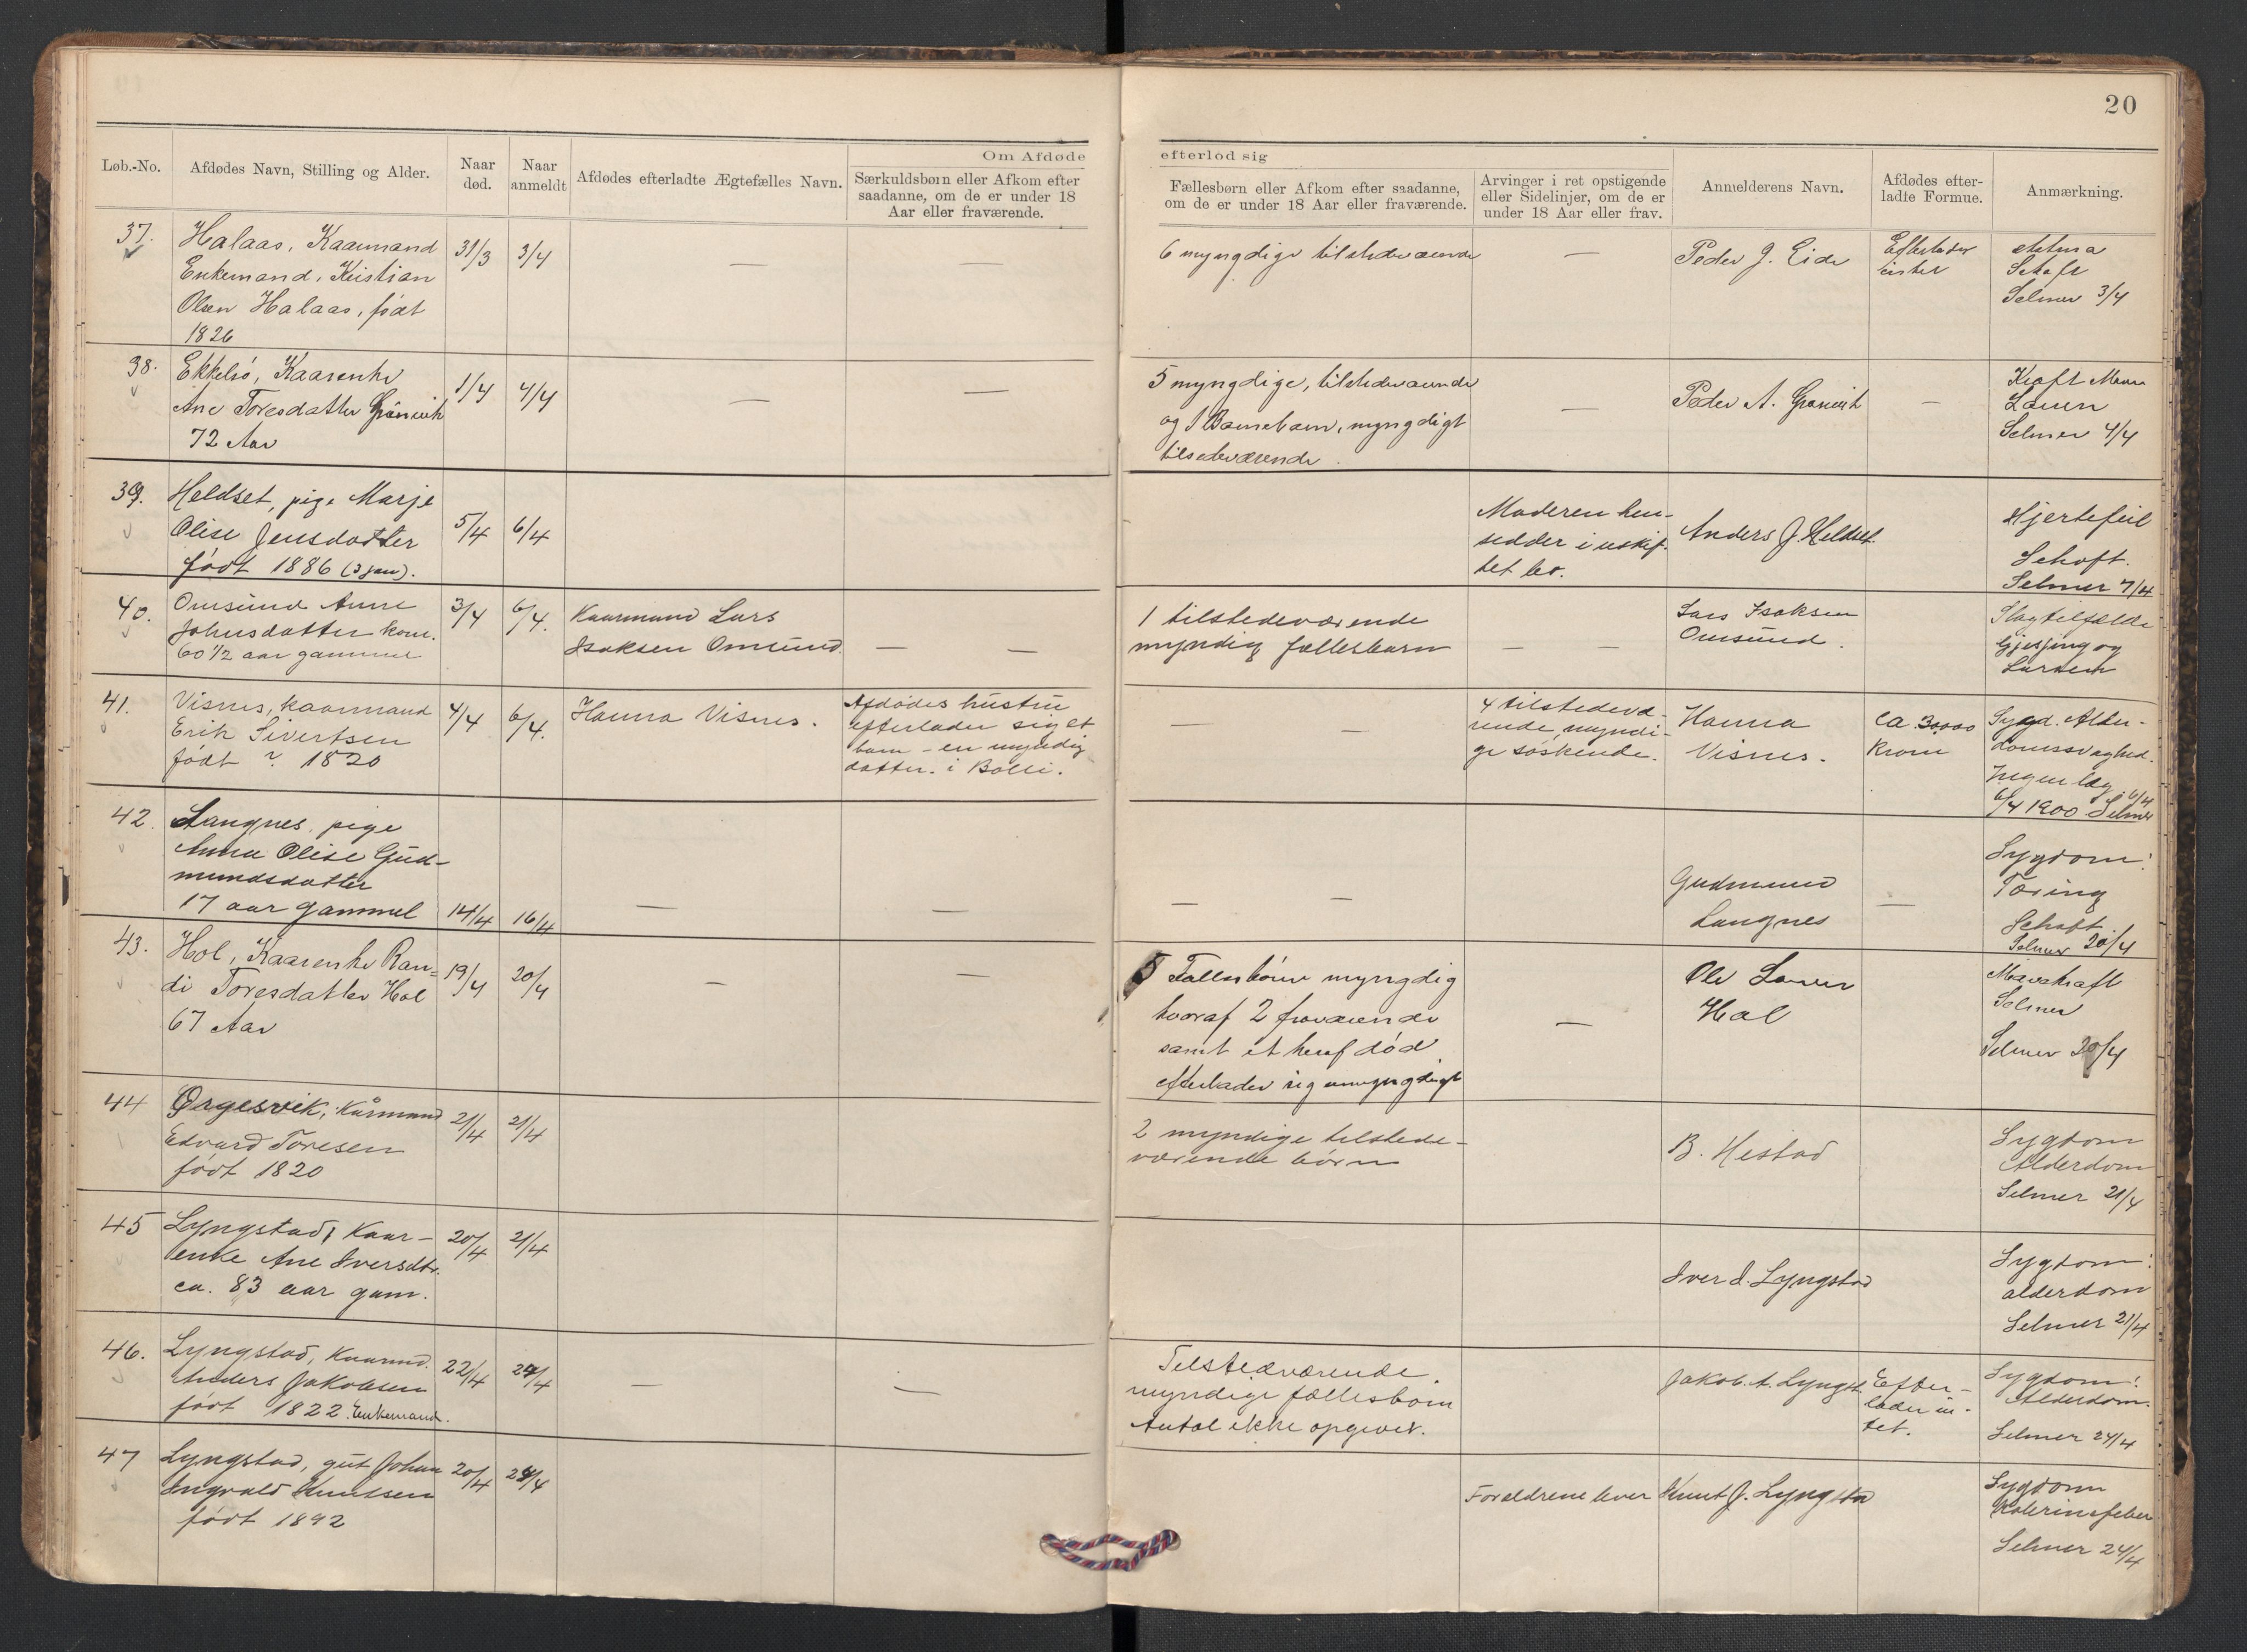 20
Om Afdøde efterlod sig
Løb.-No.
Afdødes Navn, Stilling og Alder.
Naar død.
Naar anmeldt
Afdødes efterladte Ægtefælles Navn.
Særkuldsbørn eller Afkom efter
saadanne, om de er under 18
Aar eller fraværende.
Fællesbørn eller Afkom efter saadanne,
om de er under 18 Aar eller fraværende.
Arvinger i ret opstigende
eller Sidelinjer, om de er
under 18 Aar eller frav.
Anmelderens Navn.
Afdødes efter-
ladte Formue.
Anmærkning.
37.
Halaas, Kaarmand
Enkemand, Kristian
Olsen Halaas, født
1826
31/3
3/4
—
—
6 myngdige tilstedeværende
—
Peder J. Eide
Efterlader
intet
Astma
Schoft
Selmer 3/4
38.
Ekkelsö, Kaarenke
Ane Toresdatter Grönvik
72 Aar
1/4
4/4
—
—
5 myngdige, tilstedeværende
og 1 Barnebarn, myngdigt
tilsedeværende.
—
Peder A. Grönvik
—
Kraft Mave
Selmer 4/4
39.
Heldset, pige Marje
Olise Jensdatter
født 1886 (3 jan).
5/4
6/4
Moderen hen-
sidder i uskif-
tet bo.
Anders J. Heldset.
Hjertefeil
Schoft.
Selmer 7/4
40.
Omsund Anne
Johnsdatter kone.
60 1/2 aar gammel
3/4
6/4.
Kaarmand Lars
Isaksen Omsund.
—
—
1 tilstedeværende
myndig fællesbarn
—
—
Lars Isaksen
Omsund.
Slagtilfælde
Gjessing og
Larsen
41.
Visnes, kaarmand
Erik Sivertsen
født ? 1820
4/4
6/4.
Hanna Visnes.
Afdødes hustru
efterlader sig et
barn - en myndig
datter. i Bolli.
—
—
4 tilstedevæ-
rende, myndi-
ge søskende.
Hanna
Visnes.
ca. 30,000
Kroner
Sygd. Alder-
domssvaghed.
Ingen læge 6/4
6/4 1900 Selmer
42.
Langnes, pige
Anna Olise Gud-
mundsdatter
17 aar gammel
14/4
16/4
—
—
—
—
Gudmund
Langnes
—
Sygdom:
Tæring
Schoft.
Selmer 20/4
43.
Hol, Kaarenke Ran-
di Toresdatter Hol
67 Aar
19/4
20/4
—
—
5 Fællesbörn myngdig
hvoraf 2 fraværende
samt et heraf död
efterlader sig umyngdigt
—
Ole Larsen
Hol
Mavekraft
Selmer
Selmer 20/4
44
Ørgesvik, Kårmand
Edvard Toresen
født 1820
21/4
21/4
2 myndige tilstede-
værende børn
B. Hestad
Sygdom
Alderdom
Selmer 21/4
45
Lyngstad, Kaar-
enke Ane Iversdtr.
ca. 83 aar gam.
20/4
21/4
Iver I. Lyngstad
Sygdom:
alderdom
Selmer 21/4
46.
Lyngstad, Kaarmd.
Anders Jakobsen
født 1822. Enkemand.
22/4
24/4
—
—
Tilstedværende
myndige fællesbørn
Antal ikke opgivet.
Jakob. A. Lyngst.
Efter-
lader in-
tet.
Sygdom:
Alderdom.
Selmer 24/4
47
Lyngstad, gut Johan
Ingvald Knutsen
født 1892
20/4
24/4
Forældrene lever
Knut J. Lyngsta
Sygdom
Selmer 24/4